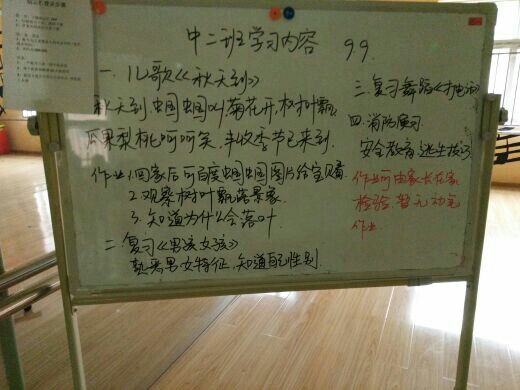 中二班学习内容 9.9.
一、儿歌《秋天到》
秋天到，蝈蝈叫，菊花开，树叶飘，
瓜果梨桃呵呵笑，丰收季节已来到。
作业：1.回家后可百度蝈蝈图片给宝贝看
2.观察树叶飘落景象
3.知道为什么会落叶
二.复习《男孩女孩》
熟悉男女特征，知道自己性别.
三.复习舞蹈《打电话》
四.消防演习
安全教育 逃生技巧
作业可由家长在家
检验.暂无动笔
作业.